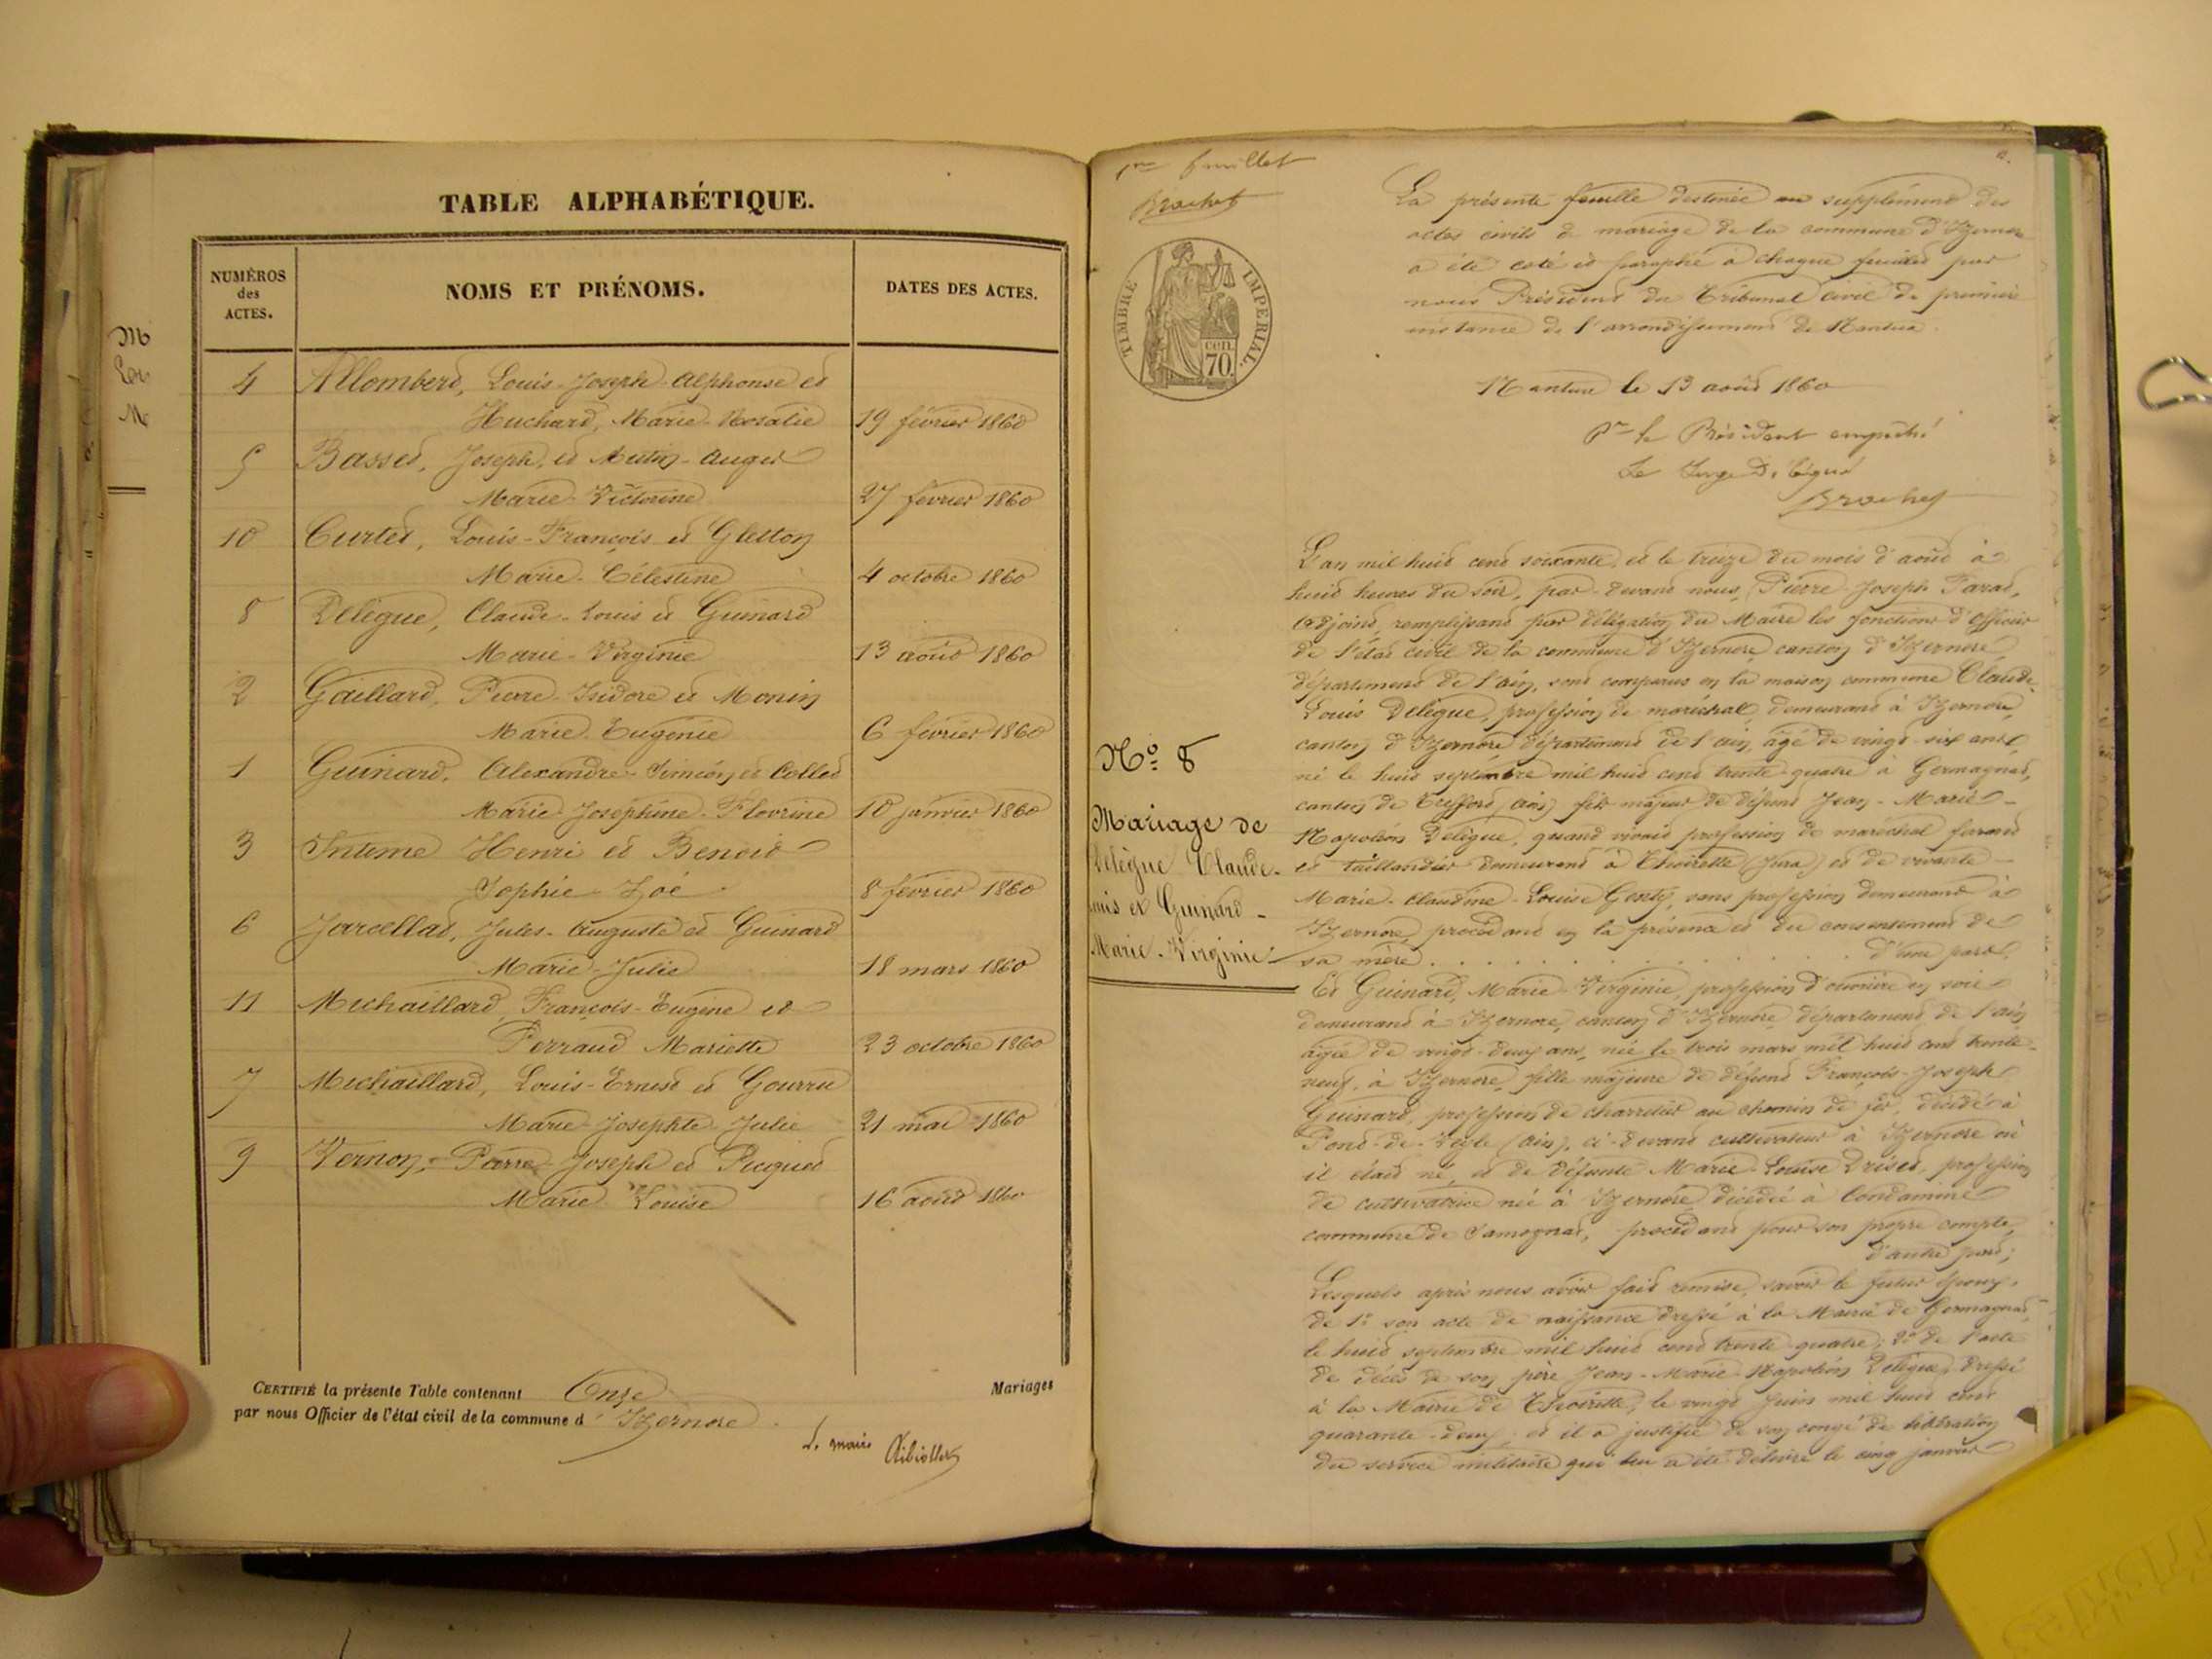 TABLE ALPHABÉTIQUE.
NUMÉROS des ACTES.
NOMS ET PRÉNOMS.
DATES DES ACTES.
4 Allombert, Louis-Joseph-Alphonse et
Huchard, Marie-Rosalie 19 février 1860
5 Basset, Joseph, et Mutin-Auger
Marie-Victorine 27 février 1860
10 Curtet, Louis-François et Gletton
Marie-Célestine 4 octobre 1860
8 Delègue, Claude-Louis et Guinard
Marie-Virginie 13 août 1860
2 Gaillard, Pierre-Isidore et Monin
Marie-Eugénie 6 février 1860
1 Guinard, Alexandre-Siméon et Collet
Marie-Joséphine-Florine 10 janvier 1860
3 Inteme Henri et Benoit
Sophie-Zoé 8 février 1860
6 Jarcellat, Jules-Auguste et Guinard
Marie-Julie 18 mars 1860
11 Michaillard, François-Eugène et
Perraud Mariette 23 octobre 1860
7 Michaillard, Louis-Ernest et Gourru
Marie-Josephte-Julie 21 mai 1860
9 Vernon, Pierre-Joseph et Picquet
Marie Louise 16 août 1860
CERTIFIÉ la présente Table contenant Onze Mariages
par nous Officier de l'état civil de la commune d'Izernore
Le maire
1er feuillet
Brochet
TIMBRE IMPÉRIAL.
cen. 70.
La présente feuille destinée au supplément des
actes civils de mariage de la commune d'Izernore
a été coté et paraphé à chaque feuillet par
nous Président du Tribunal civil de première
instance de l'arrondissement de Nantua.
Nantua le 13 août 1860
Pr le Président empêché
Le Juge Délégué
Brochet
L'an mil huit cent soixante et le treize du mois d'août à
huit heures du soir, par devant nous, Pierre Joseph
Adjoint, remplissant par délégation du Maire les fonctions d'officier
de l'état civil de la commune d'Izernore, canton d'Izernore,
département de l'ain, sont comparus en la maison commune Claude
Louis Delègue, profession de maréchal, demeurant à Izernore,
canton d'Izernore département de l'ain, âgé de vingt-six ans,
né le huit septembre mil huit cent trente-quatre à Germagnat,
canton de Treffort (ain) fils majeur de défunt Jean-Marie-
Napoléon Delègue, quand vivait profession de maréchal ferrant
et taillandier demeurant à Thoirette (Jura) et de vivante
Marie-Claudine-Louise Genty, sans profession demeurant à
Izernore, procédant en la présence et du consentement de
sa mère . . . . . . . . . d'une part,
Et Guinard, Marie-Virginie, profession d'ouvrière en soie
demeurant à Izernore, canton d'Izernore, département de l'ain,
âgée de vingt-deux ans, née le trois mars mil huit cent trente-
neuf, à Izernore, fille majeure de défunt François-Joseph
Guinard, profession de charretier au chemin de fer, décédé à
Pont-de-Veyle (ain), ci-devant cultivateur à Izernore où
il était né, et de défunte Marie-Louise profession
de cultivatrice née à Izernore décédée à Condamine
commune de Samognat, procédant pour son propre compte,
d'autre part;
Lesquels après nous avoir fait remise, savoir le futur époux,
de 1° son acte de naissance dressé à la Mairie de Germagnat,
le huit septembre mil huit cent trente quatre; 2° de l'acte
de décès de son père Jean-Marie-Napoléon Delègue, dressé
à la Mairie de Thoirette, le vingt Juin mil huit cent
quarante-deux; et il a justifié de son congé de libération
du service militaire qui lui a été délivré le cinq janvier
N° 8
Mariage de
Delègue Claude-
Louis et Guinard-
Marie-Virginie